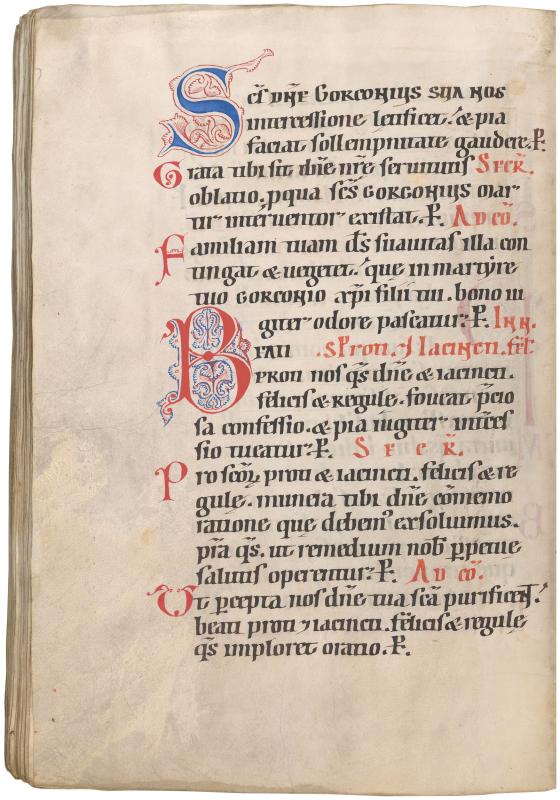 Sc̄s dn̄e Gorgonius sua nos
intercessione letificet. & pia
faciat sollempnitate gaudere. P.
Grata tibi sit dn̄e nr̄e seruitutis Secr̄.
oblatio. p qua sc̄s Gorgonius mar
tir interuentor existat. P. Ad cō.
Familiam tuam d̄s suauitas illa con
tingat & uegetet. que in martyre
tuo gorgonio xp̄i filii tui. bono iu
giter odore pascatur. P. In n.
Beati .s Proti. & Iacincti. fel.
Proti nos q̄s dn̄e & iacincti.
felicis & regule. foueat p̄cio
sa confessio. & pia iugiter interces
sio tueatur. P. Secr̄.
Pro sc̄oꝝ proti & iacincti. felicis & re
gule. munera tibi dn̄e cōmemo
ratione que debemꝰ exsoluimus.
pr̄a q̄s. ut remedium nob̄ ꝑpetue
salutis operentur. P. Ad cō.
Ut ꝑcepta nos dn̄e tua sc̄a purificēt.
beati proti ⁊ iacincti. felicis & regule
q̄s imploret oratio. P.